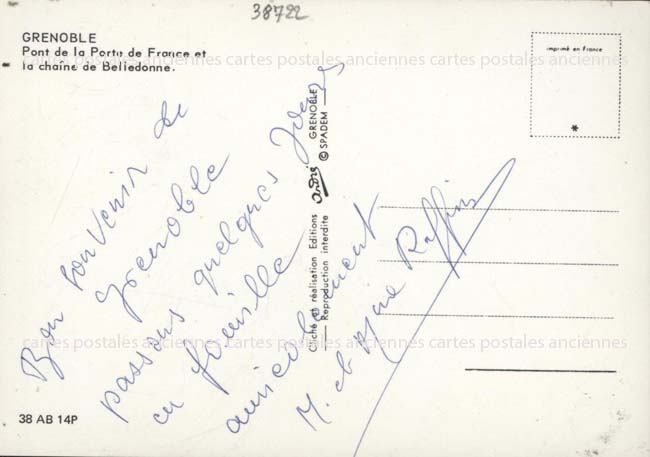 38722
GRENOBLE
Pont de la Porte de France et
la chaîne de Belledonne.
imprimé en France
*
cartes postales anciennes cartes postales anciennes cartes postales anciennes
Bon souvenir de
Grenoble
passons quelques jours
en famille
amicalement
M. et Mme Raffin
Cliché et réalisation Editions André GRENOBLE
Reproduction interdite © SPADEM
cartes postales anciennes cartes postales anciennes cartes postales anciennes
cartes postales anciennes cartes postales anciennes cartes postales anciennes
38 AB 14P